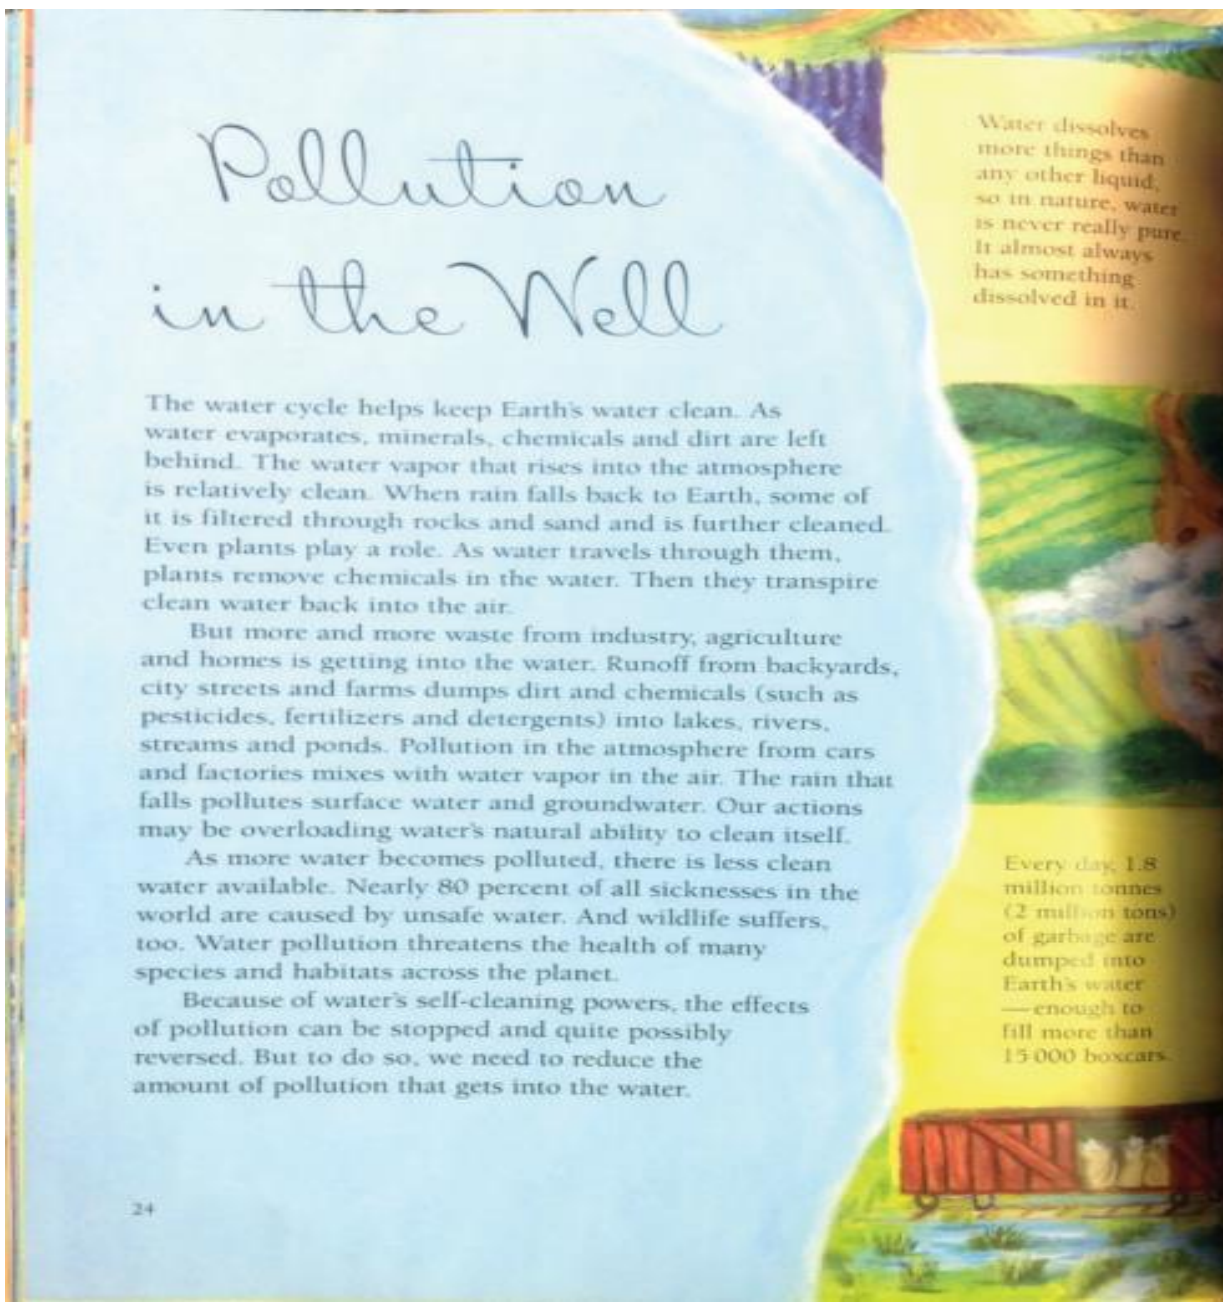 Pollution
in the Well
The water cycle helps keep Earth's water clean. As
water evaporates, minerals, chemicals and dirt are left
behind. The water vapor that rises into the atmosphere
is relatively clean. When rain falls back to Earth, some of
it is filtered through rocks and sand and is further cleaned.
Even plants play a role. As water travels through them,
plants remove chemicals in the water. Then they transpire
clean water back into the air.
But more and more waste from industry, agriculture
and homes is getting into the water. Runoff from backyards,
city streets and farms dumps dirt and chemicals (such as
pesticides, fertilizers and detergents) into lakes, rivers,
streams and ponds. Pollution in the atmosphere from cars
and factories mixes with water vapor in the air. The rain that
falls pollutes surface water and groundwater. Our actions
may be overloading water's natural ability to clean itself.
As more water becomes polluted, there is less clean
water available. Nearly 80 percent of all sicknesses in the
world are caused by unsafe water. And wildlife suffers,
too. Water pollution threatens the health of many
species and habitats across the planet.
Because of water's self-cleaning powers, the effects
of pollution can be stopped and quite possibly
reversed. But to do so, we need to reduce the
amount of pollution that gets into the water.
24
Water dissolves
more things than
any other liquid,
so in nature, water
is never really pure.
It almost always
has something
dissolved in it.
Every day, 1.8
million tonnes
(2 million tons)
of garbage are
dumped into
Earth's water
—enough to
fill more than
15 000 boxcars.